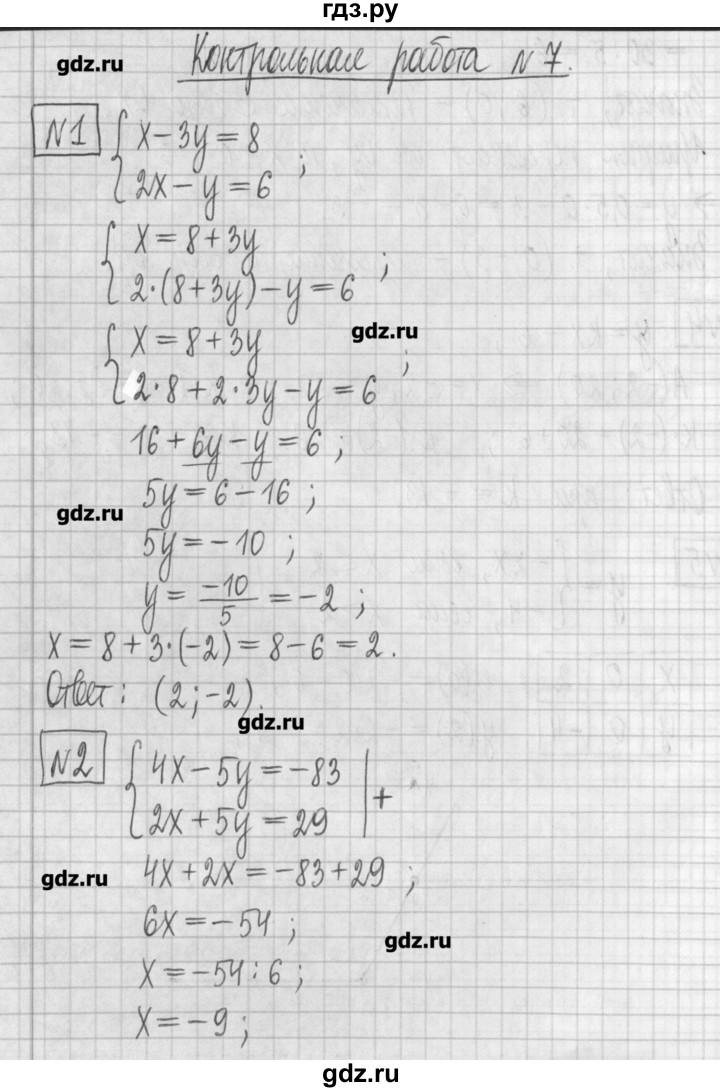 гдз.ру
gdz.ru
Контрольная работа №7.
№1 { x − 3y = 8
2x − y = 6 ;
{ x = 8 + 3y
2·(8+3y) − y = 6 ;
{ x = 8 + 3y
gdz.ru
2·8 + 2·3y − y = 6 ;
16 + 6y − y = 6 ;
5y = 6 − 16 ;
gdz.ru
5y = −10 ;
y = −10/5 = −2 ;
x = 8 + 3·(−2) = 8 − 6 = 2.
Ответ: (2; −2).
gdz.ru
№2 { 4x − 5y = −83
2x + 5y = 29 | +
4x + 2x = −83 + 29 ;
gdz.ru
6x = −54 ;
gdz.ru
x = −54 : 6 ;
x = −9 ;
gdz.ru